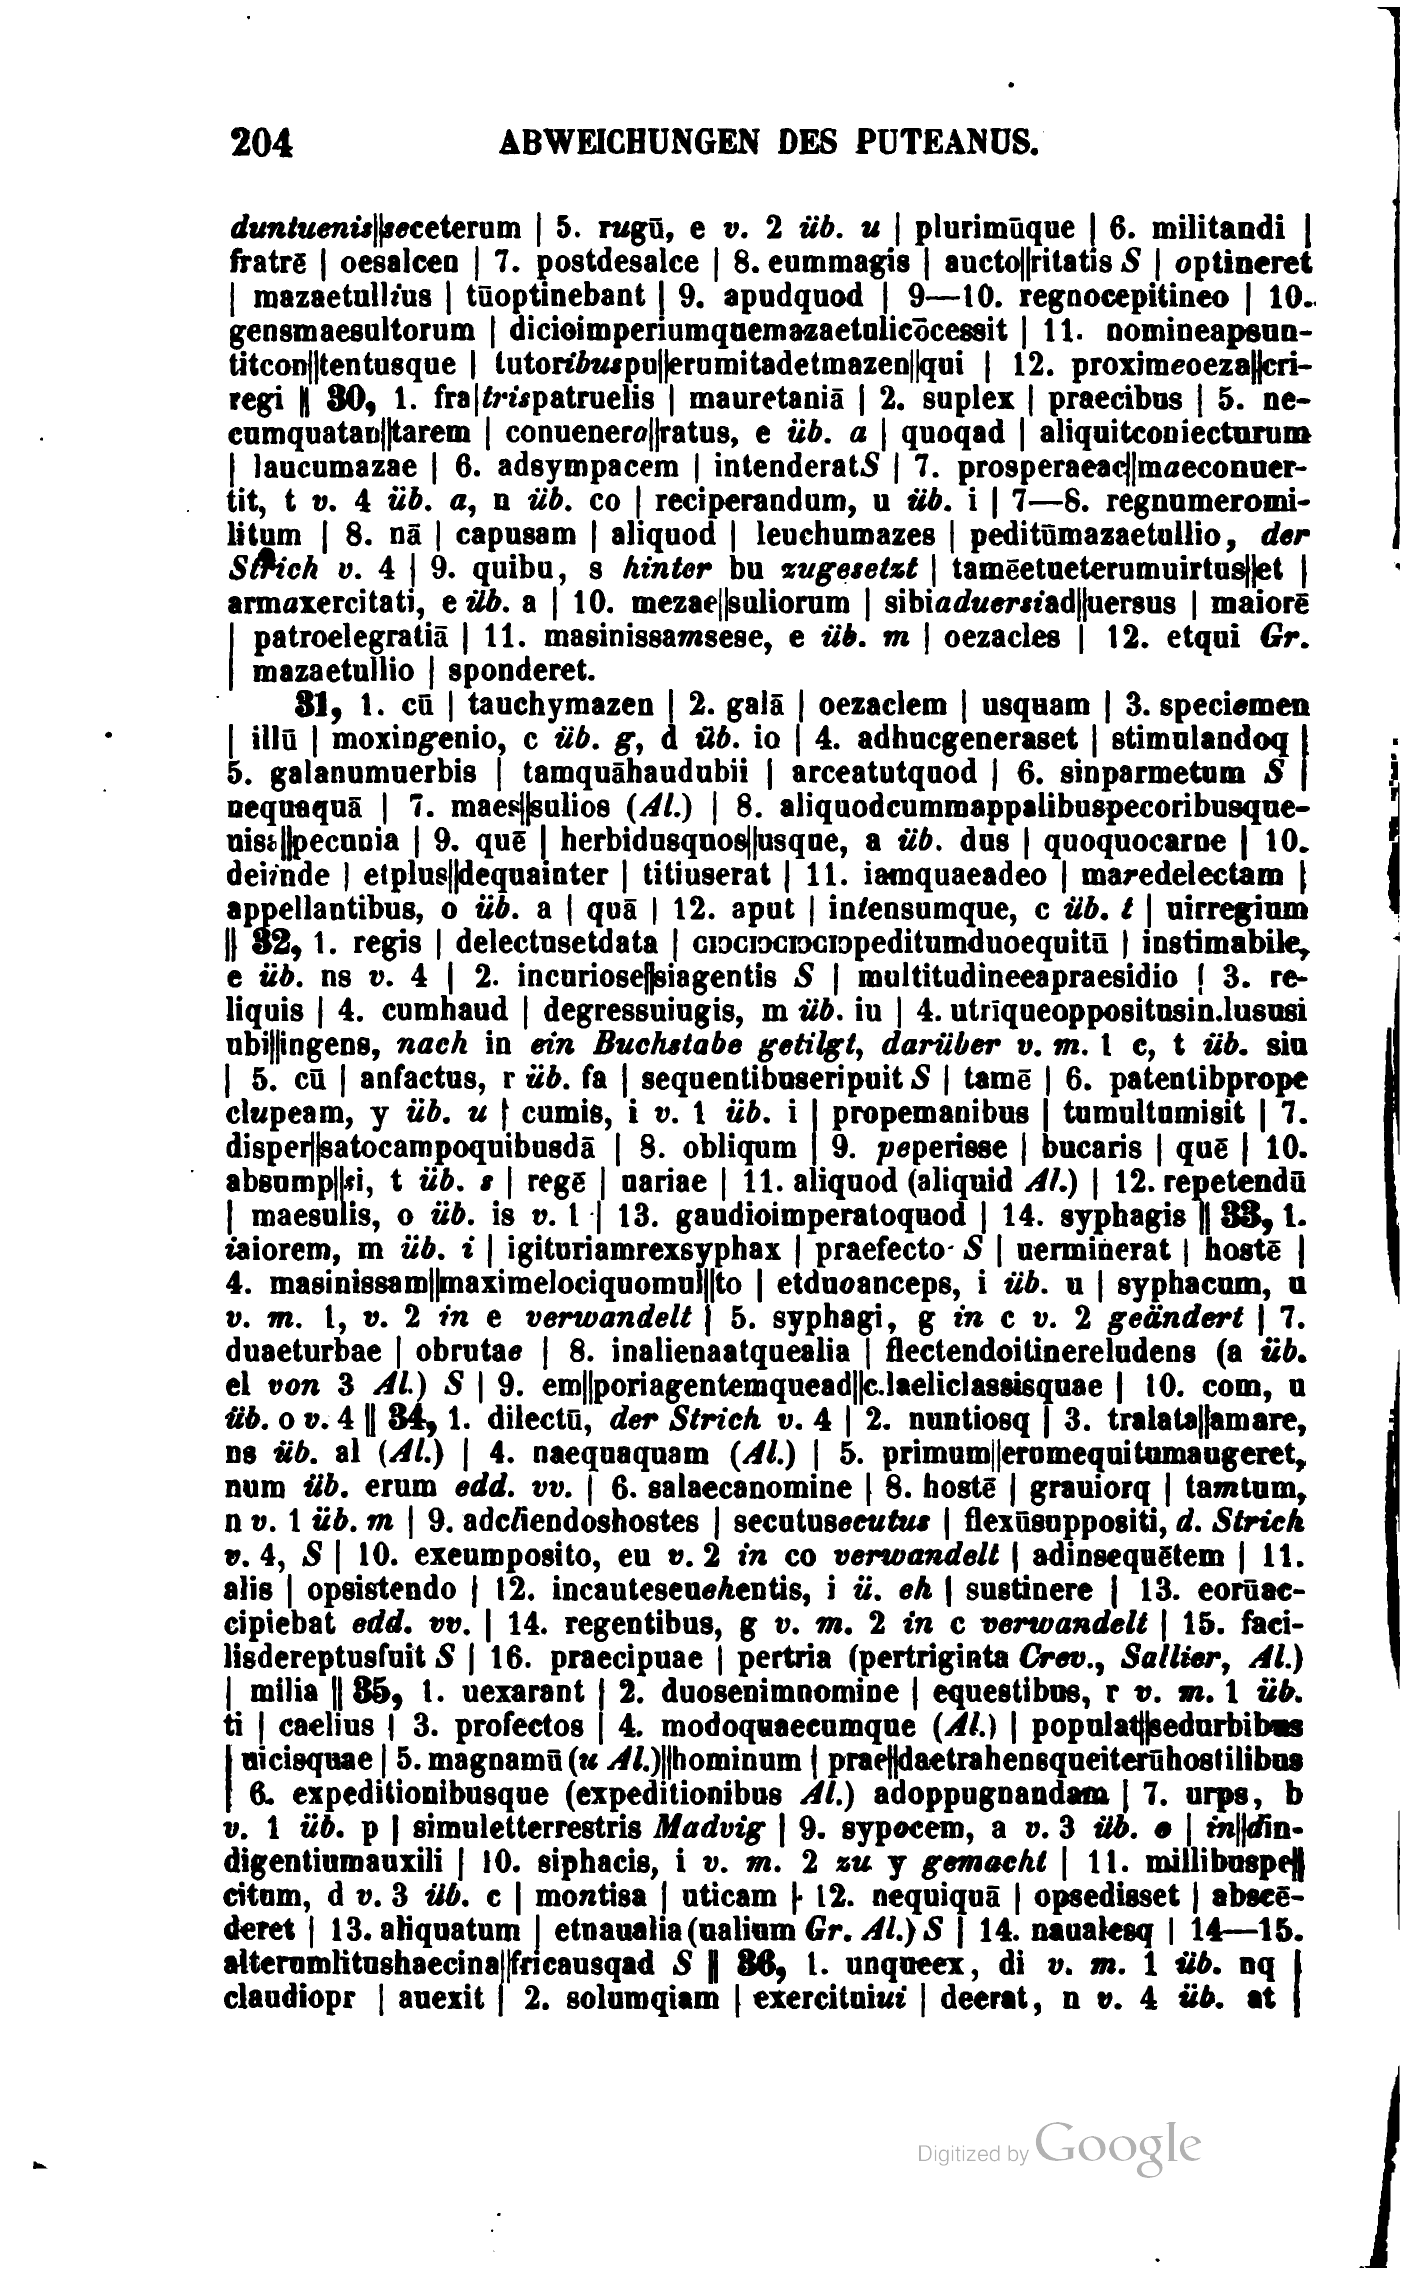 204 ABWEICHUNGEN DES PUTEANUS.
duntuenis||seceterum | 5. rugū, e v. 2 üb. u | plurimūque | 6. militandi |
fratrē | oesalcen | 7. postdesalce | 8. eummagis | aucto||ritatis S | optineret
| mazaetullius | tūoptinebant | 9. apudquod | 9—10. regnocepitineo | 10.
gensmaesultorum | dicioimperiumquemazaetulicōcessit | 11. nomineapsun-
titcon||tentusque | tutoribuspu||erumitadetmazen||qui | 12. proximeoeza||cri-
regi || 30, 1. fra|trispatruelis | mauretaniā | 2. suplex | praecibus | 5. ne-
cumquatan||tarem | conuenero||ratus, e üb. a | quoqad | aliquitconiecturum
| laucumazae | 6. adsympacem | intenderatS | 7. prosperaeac||maeconuer-
tit, t v. 4 üb. a, n üb. co | reciperandum, u üb. i | 7—8. regnumeromi-
litum | 8. nā | capusam | aliquod | leuchumazes | peditūmazaetullio, der
Strich v. 4 | 9. quibu, s hinter bu zugesetzt | tamēetueterumuirtus||et |
armaxercitati, e üb. a | 10. mezae||suliorum | sibiaduersiad||uersus | maiorē
| patroelegratiā | 11. masinissamsese, e üb. m | oezacles | 12. etqui Gr.
| mazaetullio | sponderet.
31, 1. cū | tauchymazen | 2. galā | oezaclem | usquam | 3. speciemen
| illū | moxingenio, c üb. g, d üb. io | 4. adhucgeneraset | stimulandoq |
5. galanumuerbis | tamquāhaudubii | arceatutquod | 6. sinparmetum S |
nequaquā | 7. maes||sulios (Al.) | 8. aliquodcummappalibuspecoribusque-
niss||pecunia | 9. quē | herbidusquos||usque, a üb. dus | quoquocarne | 10.
deiinde | etplus||dequainter | titiuserat | 11. iamquaeadeo | maredelectam |
appellantibus, o üb. a | quā | 12. aput | intensumque, c üb. t | uirregium
|| 32, 1. regis | delectusetdata | cıɔcıɔcıɔcıɔpeditumduoequitū | instimabile,
e üb. ns v. 4 | 2. incuriose||siagentis S | multitudineeapraesidio | 3. re-
liquis | 4. cumhaud | degressuiugis, m üb. iu | 4. utrīqueoppositusin.lususi
ubi||ingens, nach in ein Buchstabe getilgt, darüber v. m. 1 c, t üb. siu
| 5. cū | anfactus, r üb. fa | sequentibuseripuit S | tamē | 6. patentibprope
clupeam, y üb. u | cumis, i v. 1 üb. i | propemanibus | tumultumisit | 7.
disper||satocampoquibusdā | 8. obliqum | 9. peperisse | bucaris | quē | 10.
absump||si, t üb. s | regē | uariae | 11. aliquod (aliquid Al.) | 12. repetendū
| maesulis, o üb. is v. 1 | 13. gaudioimperatoquod | 14. syphagis || 33, 1.
iaiorem, m üb. i | igituriamrexsyphax | praefecto S | uerminerat | hostē |
4. masinissam||maximelociquomul||to | etduoanceps, i üb. u | syphacum, u
v. m. 1, v. 2 in e verwandelt | 5. syphagi, g in c v. 2 geändert | 7.
duaeturbae | obrutae | 8. inalienaatquealia | flectendoitinereludens (a üb.
el von 3 Al.) S | 9. em||poriagentemquead||c.laeliclassisquae | 10. com, u
üb. o v. 4 || 34, 1. dilectū, der Strich v. 4 | 2. nuntiosq | 3. tralata||amare,
ns üb. al (Al.) | 4. naequaquam (Al.) | 5. primum||erumequitumaugeret,
num üb. erum edd. vv. | 6. salaecanomine | 8. hostē | grauiorq | tamtum,
n v. 1 üb. m | 9. adcliendoshostes | secutusecutus | flexūsuppositi, d. Strich
v. 4, S | 10. exeumposito, eu v. 2 in co verwandelt | adinsequētem | 11.
alis | opsistendo | 12. incauteseuehentis, i ü. eh | sustinere | 13. eorūac-
cipiebat edd. vv. | 14. regentibus, g v. m. 2 in c verwandelt | 15. faci-
lisdereptusfuit S | 16. praecipuae | pertria (pertriginta Crev., Sallier, Al.)
| milia || 35, 1. uexarant | 2. duosenimnomine | equestibus, r v. m. 1 üb.
ti | caelius | 3. profectos | 4. modoquaecumque (Al.) | populat||sedurbibus
| uicisquae | 5. magnamū (u Al.)||hominum | prae||daetrahensqueiterūhostilibus
| 6. expeditionibusque (expeditionibus Al.) adoppugnandam | 7. urps, b
v. 1 üb. p | simuletterrestris Madvig | 9. sypocem, a v. 3 üb. o | in||din-
digentiumauxili | 10. siphacis, i v. m. 2 zu y gemacht | 11. millibuspe||
citum, d v. 3 üb. c | montisa | uticam | 12. nequiquā | opsedisset | abscē-
deret | 13. aliquatum | etnaualia (ualium Gr. Al.) S | 14. naualesq | 14—15.
alterumlitushaecina||fricausqad S || 36, 1. unqueex, di v. m. 1 üb. nq |
claudiopr | auexit | 2. solumqiam | exercituiui | deerat, n v. 4 üb. at |
Digitized by Google